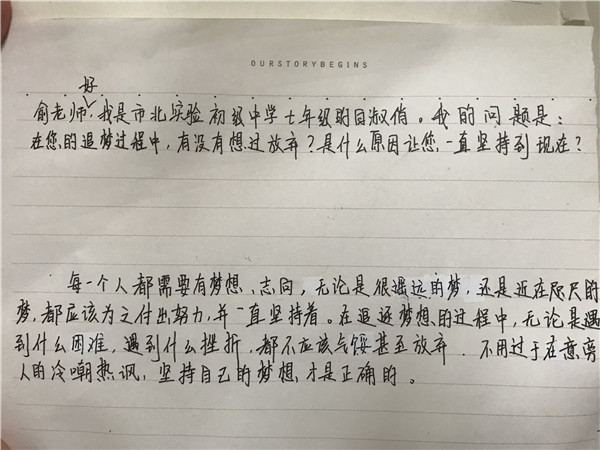 OURSTORYBEGINS
好
俞老师,我是市北实验初级中学七年级的吕淑俏。我的问题是:
在您的追梦过程中,有没有想过放弃?是什么原因让您一直坚持到现在?
每一个人都需要有梦想、志向,无论是很遥远的梦,还是近在咫尺的
梦,都应该为之付出努力,并一直坚持着。在追逐梦想的过程中,无论是遇
到什么困难,遇到什么挫折,都不应该气馁甚至放弃.不用过于在意旁
人的冷嘲热讽,坚持自己的梦想,才是正确的。